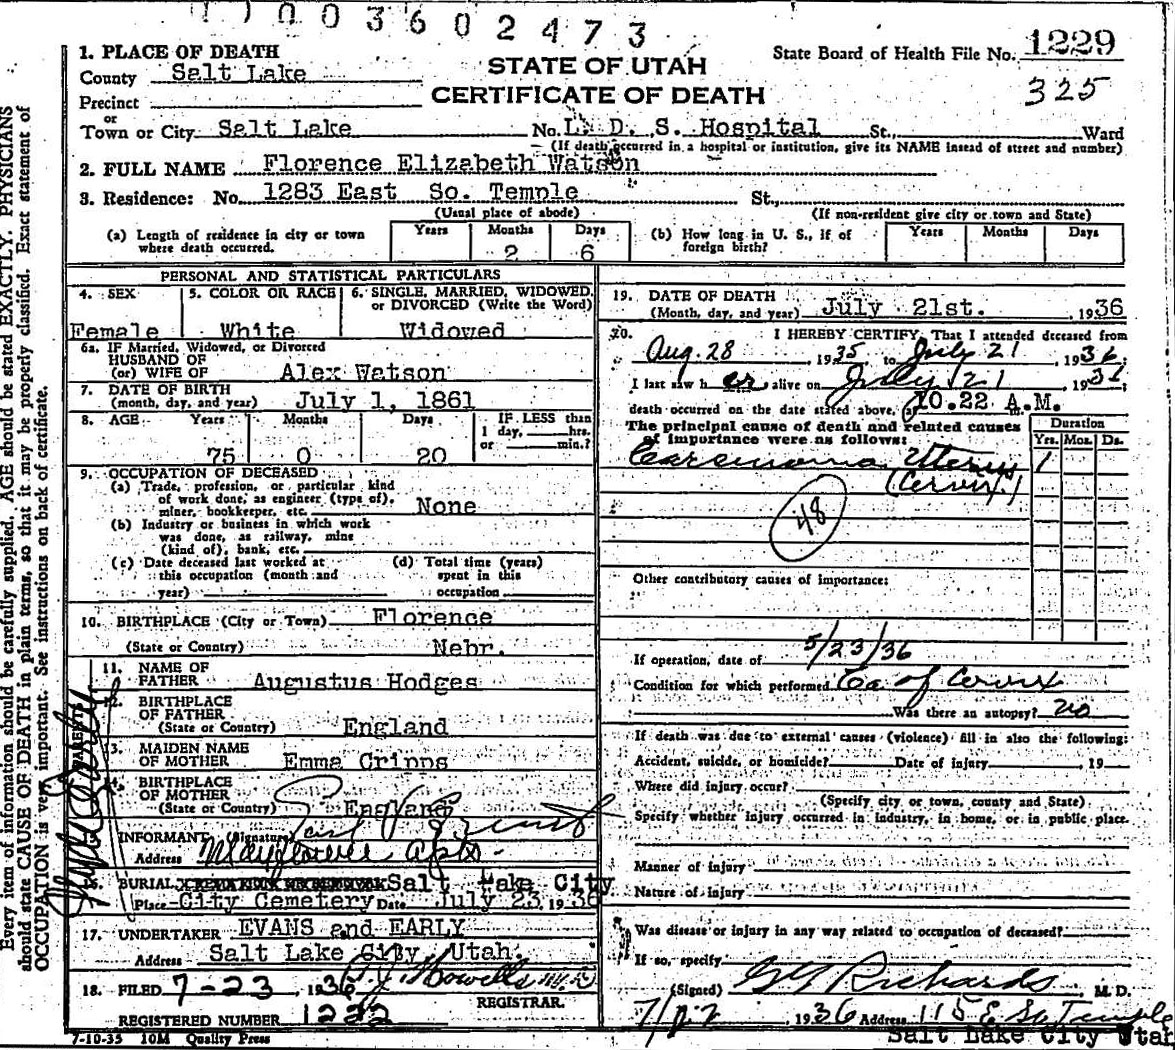 1003602473
1. PLACE OF DEATH
County Salt Lake
Precinct
or
Town or City Salt Lake
STATE OF UTAH
CERTIFICATE OF DEATH
State Board of Health File No. 1229
325
No. L. D. S. Hospital St., Ward
(If death occurred in a hospital or institution, give its NAME insead of street and number)
2. FULL NAME Florence Elizabeth Watson
3. Residence: No. 1283 East So. Temple St.,
(Usual place of abode) (If non-resident give city or town and State)
(a) Length of residence in city or town where death occurred. Years Months 2 Days 6
(b) How long in U. S., if of foreign birth? Years Months Days
PERSONAL AND STATISTICAL PARTICULARS
4. SEX Female
5. COLOR OR RACE White
6. SINGLE, MARRIED, WIDOWED, or DIVORCED (Write the Word) Widowed
6a. IF Married, Widowed, or Divorced
HUSBAND OF
(or) WIFE OF Alex Watson
7. DATE OF BIRTH
(month, day, and year) July 1, 1861
8. AGE Years 75 Months 0 Days 20
IF LESS than
1 day, hrs.
or min.?
9. OCCUPATION OF DECEASED
(a) Trade, profession, or particular kind
of work done, as engineer (type of),
miner, bookkeeper, etc. None
(b) Industry or business in which work
was done, as railway, mine
(kind of), bank, etc.
(c) Date deceased last worked at
this occupation (month and
year)
(d) Total time (years)
spent in this
occupation
10. BIRTHPLACE (City or Town) Florence
(State or Country) Nebr.
PARENTS
11. NAME OF
FATHER Augustus Hodges
12. BIRTHPLACE
OF FATHER
(State or Country) England
13. MAIDEN NAME
OF MOTHER Emma Cripps
14. BIRTHPLACE
OF MOTHER
(State or Country) England
INFORMANT (Signature)
Address Mayflower Apts.
16. BURIAL Salt Lake City
Place City Cemetery Date July 23, 1936
17. UNDERTAKER EVANS and EARLY
Address Salt Lake City, Utah.
18. FILED 7-23, 1936 Howells M.D.
REGISTRAR.
REGISTERED NUMBER 1222
7-10-35 10M Quality Press
19. DATE OF DEATH
(Month, day, and year) July 21st. , 1936
20. I HEREBY CERTIFY, That I attended deceased from
Aug. 28, 1935 to July 21, 1936;
I last saw her alive on July 21, 1936;
death occurred on the date stated above, at 10.22 A.M.
The principal cause of death and related causes
of importance were as follows:
Duration
Yrs. Mos. Ds.
Carcinoma Uterus 1
(Cervix)
48
Other contributory causes of importance:
If operation, date of 5/23/36
Condition for which performed Ca of Cervix
Was there an autopsy? no
If death was due to external causes (violence) fill in also the following:
Accident, suicide, or homicide? Date of injury , 19
Where did injury occur?
(Specify city or town, county and State)
Specify whether injury occurred in industry, in home, or in public place.
Manner of injury
Nature of injury
Was disease or injury in any way related to occupation of deceased?
If so, specify
(Signed) G G Richards M. D.
1936 Address 115 E So Temple
Salt Lake City Utah
Every item of information should be carefully supplied. AGE should be stated EXACTLY. PHYSICIANS
should state CAUSE OF DEATH in plain terms, so that it may be properly classified. Exact statement of
OCCUPATION is very important. See instructions on back of certificate.